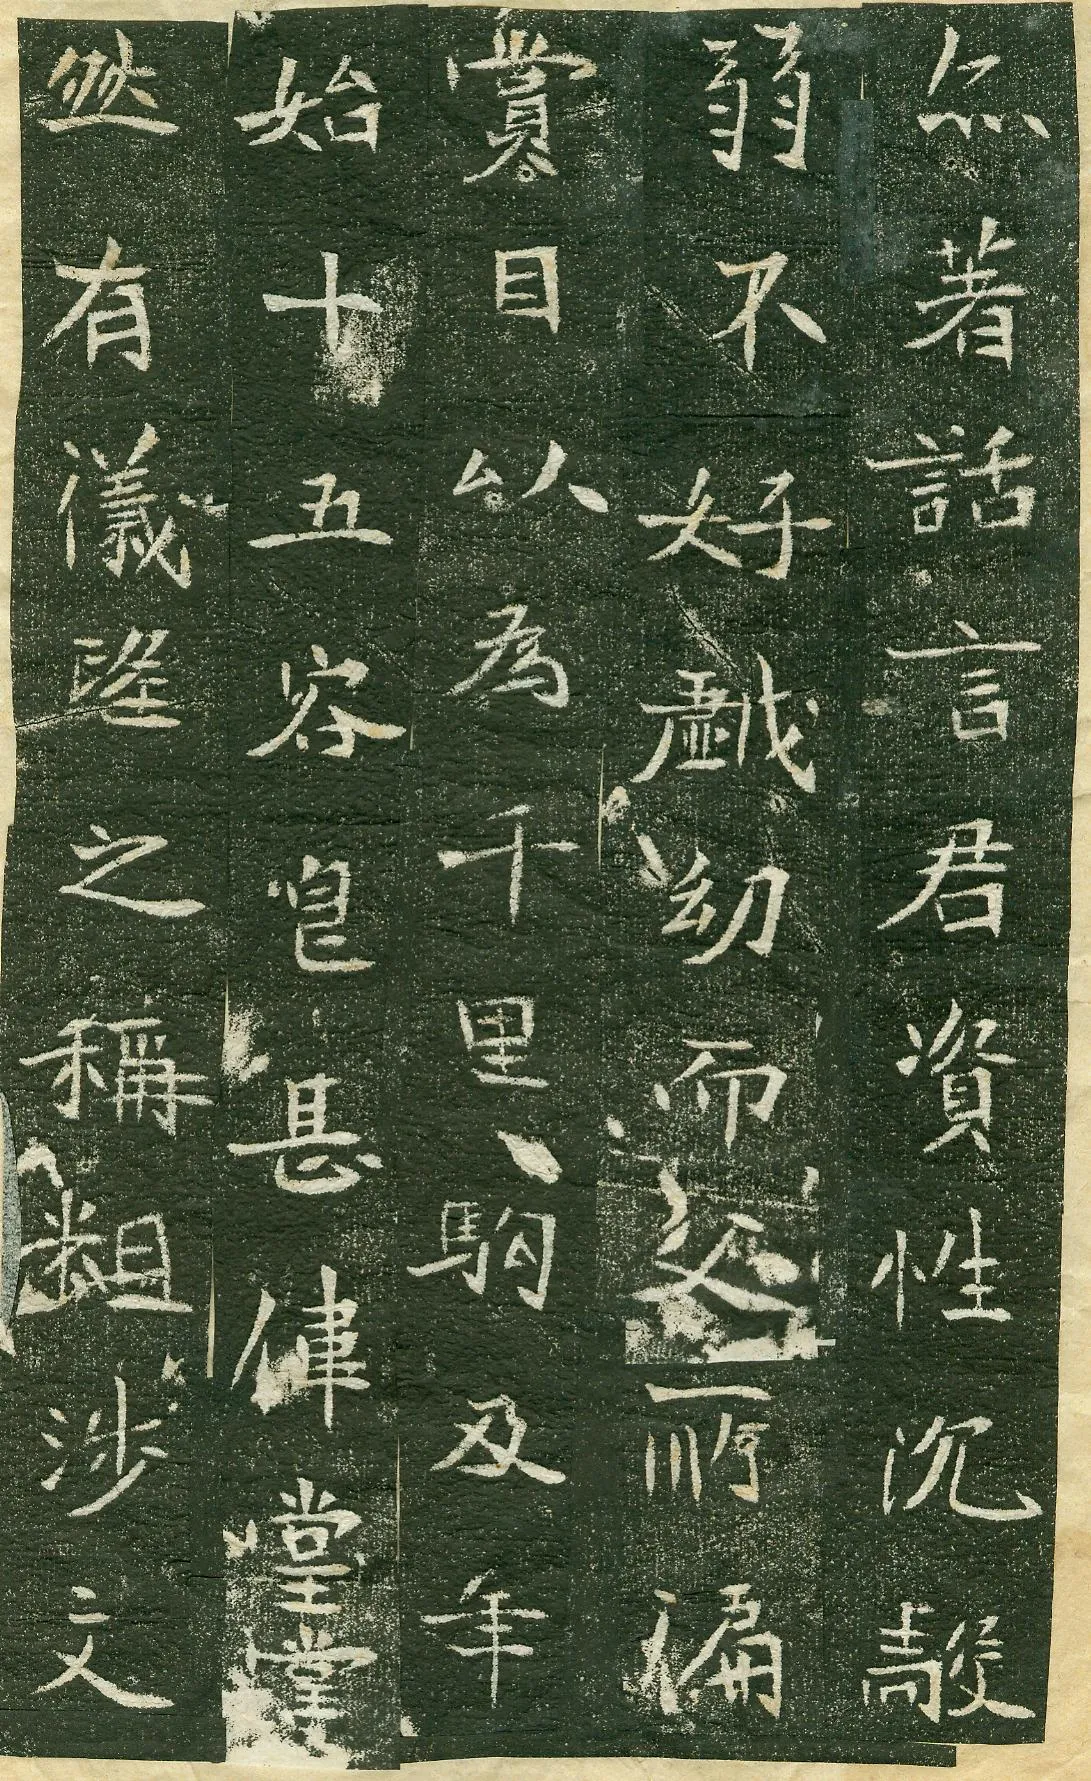 亦著話言君資性沉毅
弱不好戲幼而所偏
賞目以為千里駒及年
始十五容皃甚偉堂堂
然有儀望之稱粗涉文